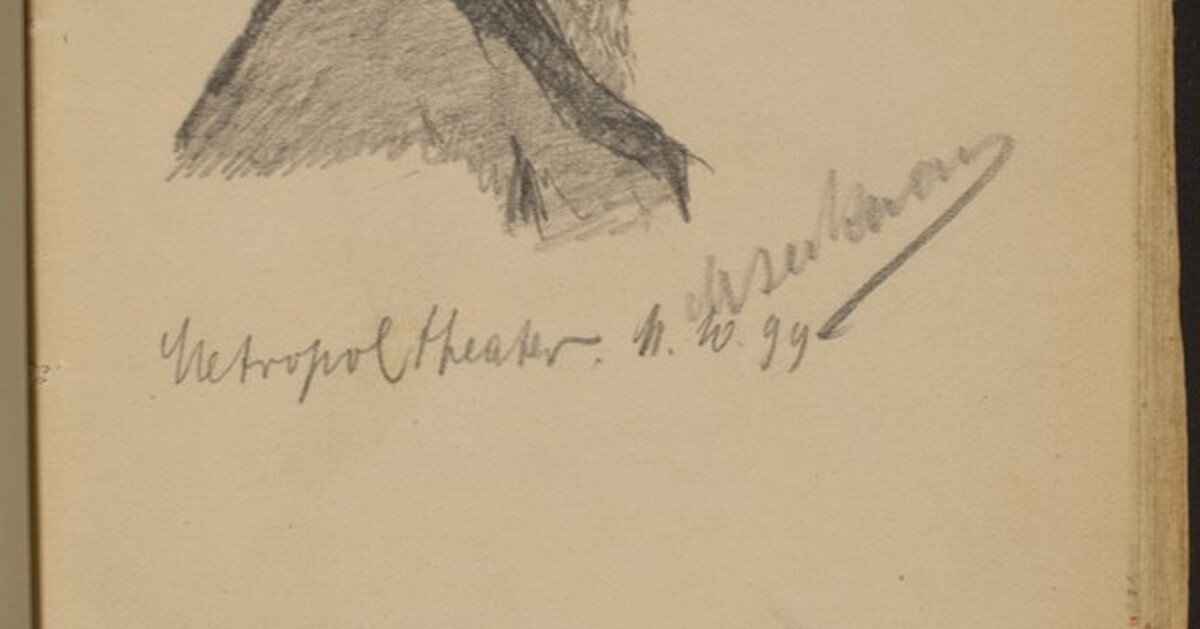 Metropoltheater. 11. 10. 99